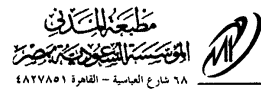 مطبعة المدني
المؤسسة السعودية بمصر
٦٨ شارع العباسية - القاهرة ٤٨٢٧٨٥١